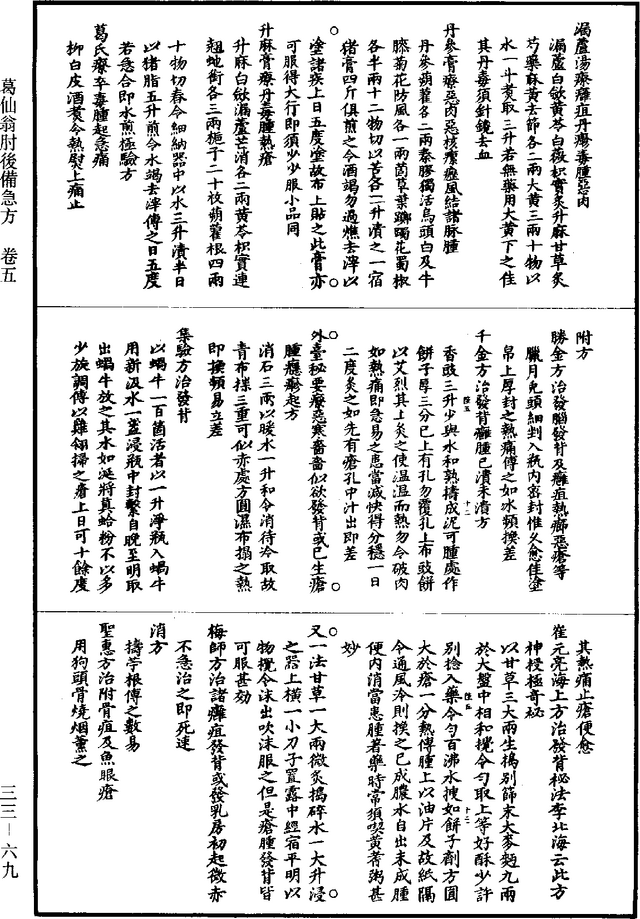 葛仙翁肘後備急方　卷五
三三－六九
漏蘆湯療癰疽丹㾦毒腫惡肉
漏蘆白斂黃芩白薇枳實炙升麻甘草炙
芍藥麻黃去節各二兩大黃三兩十物以
水一斗煮取三升若無藥用大黃下之佳
其丹毒須針鑱去血
丹參膏療惡肉惡核瘰癧風結諸脉腫
丹參蒴藋各二兩秦膠獨活烏頭白及牛
膝菊花防風各一兩茵草葉躑躅花蜀椒
各半兩十二物切以苦酒二升漬之一宿
猪膏四斤俱煎之令酒竭勿過燋去滓以
塗諸疾上日五度塗故布上貼之此膏亦
可服得大行即須少少服小品同
升麻膏療丹毒腫熱瘡
升麻白斂漏蘆芒消各二兩黃芩枳實連
翹蛇銜各三兩梔子二十枚蒴藋根四兩
十物切舂令細納器中以水三升漬半日
以猪脂五升煎令水竭去滓傅之日五度
若急合即水煎極驗方
葛氏療卒毒腫起急痛
柳白皮酒煮令熱熨上痛止
附方
勝金方治發腦發背及癰疽熱癤惡瘡等
臘月兔頭細剉入瓶內密封惟久愈佳塗
帛上厚封之熱痛傅之如冰頻換差
千金方治發背癰腫已潰未潰方
香豉三升少與水和熟擣成泥可腫處作
餅子厚三分已上有孔勿覆孔上布豉餅
以艾烈其上灸之使溫溫而熱勿令破肉
如熱痛即急易之患當減快得分穩一日
二度灸之如先有瘡孔中汁出即差
外臺秘要療惡寒嗇嗇似欲發背或已生瘡
腫癮疹起方
消石三兩以暖水一升和令消待冷取故
青布揲三重可似赤處方圓濕布搨之熱
即換頻易立差
集驗方治發背
以蝸牛一百箇活者以一升淨瓶入蝸牛
用新汲水一盞浸瓶中封繫自晚至明取
出蝸牛放之其水如涎將真蛤粉不以多
少旋調傅以雞翎掃之瘡上日可十餘度
其熱痛止瘡便愈
崔元亮海上方治發背秘法李北海云此方
神授極奇秘
以甘草三大兩生擣別篩末大麥麵九兩
於大盤中相和攪令勻取上等好酥少許
別捻入藥令勻百沸水搜如餅子劑方圓
大於瘡一分熱傅腫上以油片及故紙隔
令通風冷則換之已成膿水自出未成腫
便內消當患腫著藥時常須喫黃蓍粥甚
妙
又一法甘草一大兩微炙搗碎水一大升浸
之器上橫一小刀子置露中經宿平明以
物攪令沫出吹沫服之但是瘡腫發背皆
可服甚効
梅師方治諸癰疽發背或發乳房初起微赤
不急治之即死速
消方
擣苧根傅之數易
聖惠方治附骨疽及魚眼瘡
用狗頭骨燒烟薰之